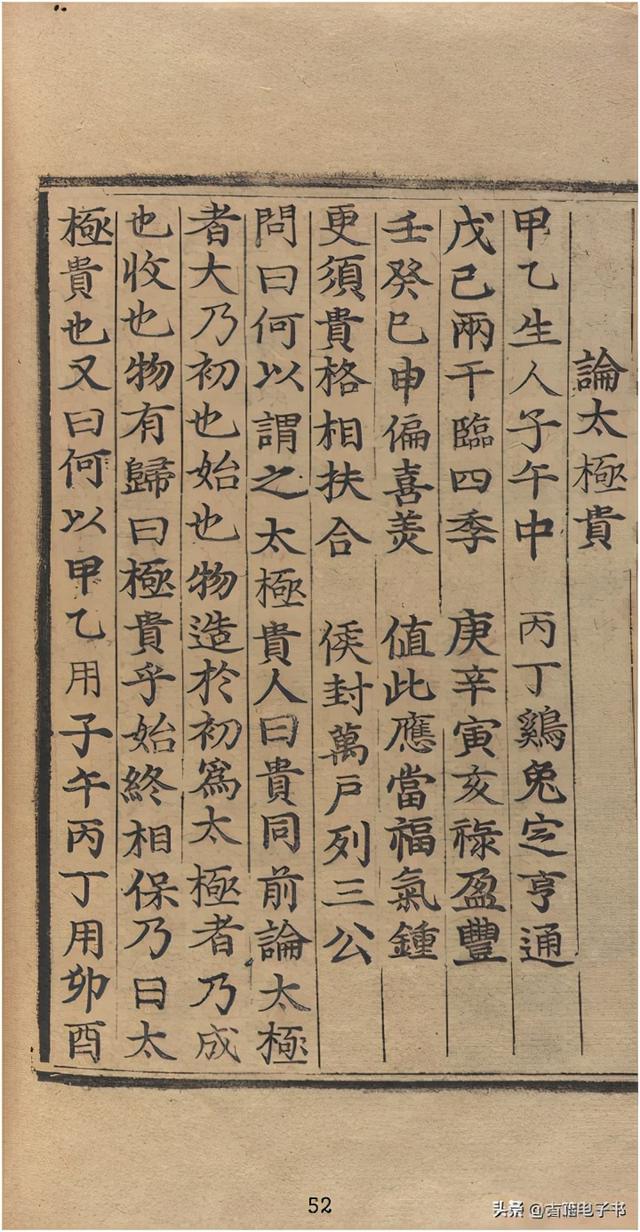 論太極貴
甲乙生人子午中 丙丁鷄兔定亨通
戊己兩干臨四季 庚辛寅亥祿盈豐
壬癸巳申偏喜羙 值此應當福氣鍾
更須貴格相扶合 侯封萬戶列三公
問曰何以謂之太極貴人曰貴同前論太極
者大乃初也始也物造於初爲太極者乃成
也收也物有歸曰極貴乎始終相保乃曰太
極貴也又曰何以甲乙用子午丙丁用卯酉
52
头条 @古籍电子书